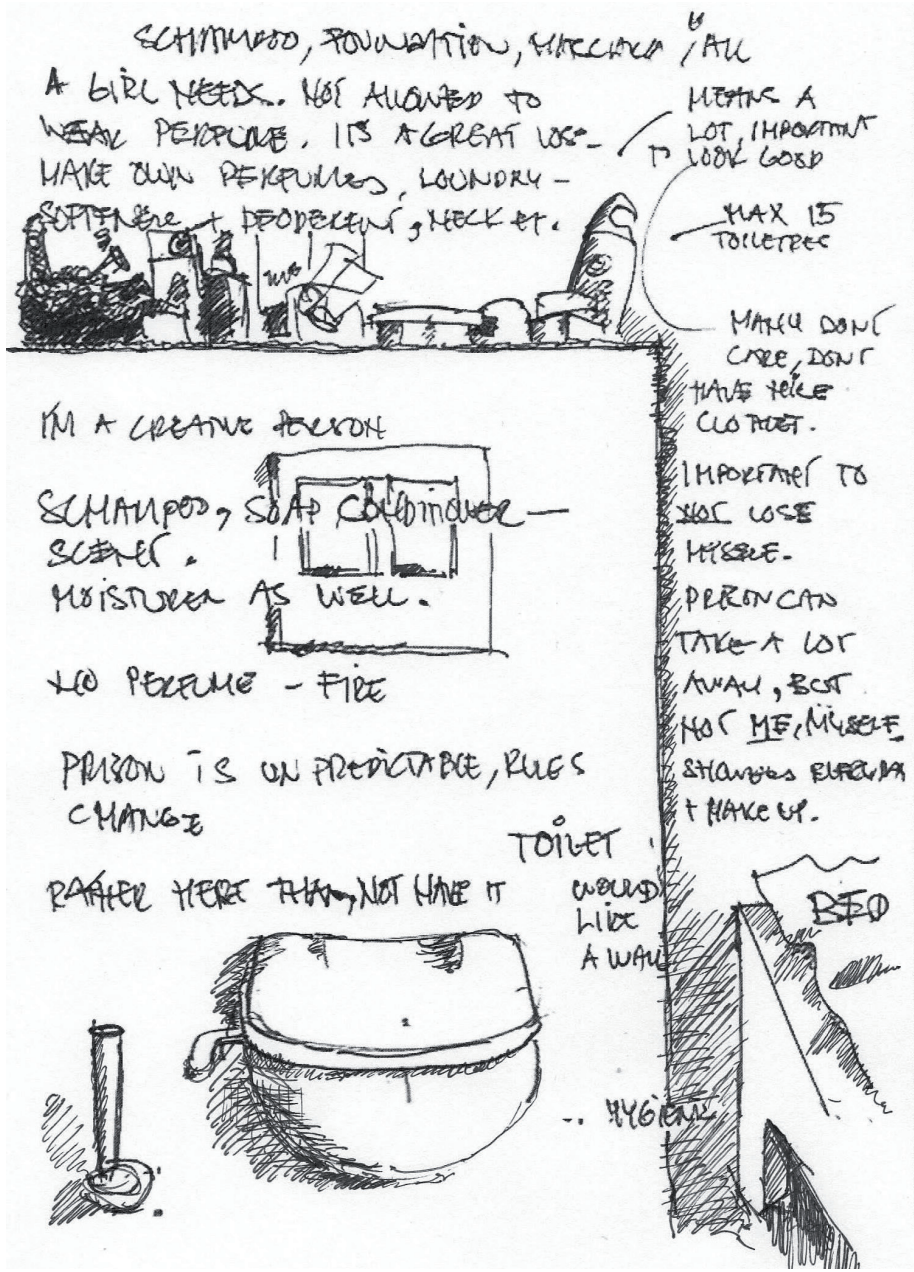 SCHAMPOO, FOUNDATION, MASCARA, ALL
A GIRL NEEDS. NOT ALLOWED TO
WEAR PERFUME. ITS A GREAT LOSS
MAKE OWN PERFUMES, LOUNDRY-
SOFTENER + DEODERENT, NECK ET.
MEANS A
LOT, IMPORTANT
LOOK GOOD
MAX 15
TOILETRES
MANY DONT
CARE, DONT
HAVE NICE
CLOTHET.
IMPORTANT TO
NOT LOSE
MYSELF.
PRISON CAN
TAKE A LOT
AWAY, BUT
NOT ME, MYSELF
SHOWERS
+ MAKE UP.
I'M A CREATIVE PERSON
SCHAMPOO, SOAP CONDITIONER -
SCENT.
MOISTURER AS WELL.
NO PERFUME - FIRE
PRISON IS UNPREDICTABLE, RULES
CHANGE
RATHER HERE THAN, NOT HAVE IT
TOILET
WOULD
LIKE
A WALL
HYGIENE
BED